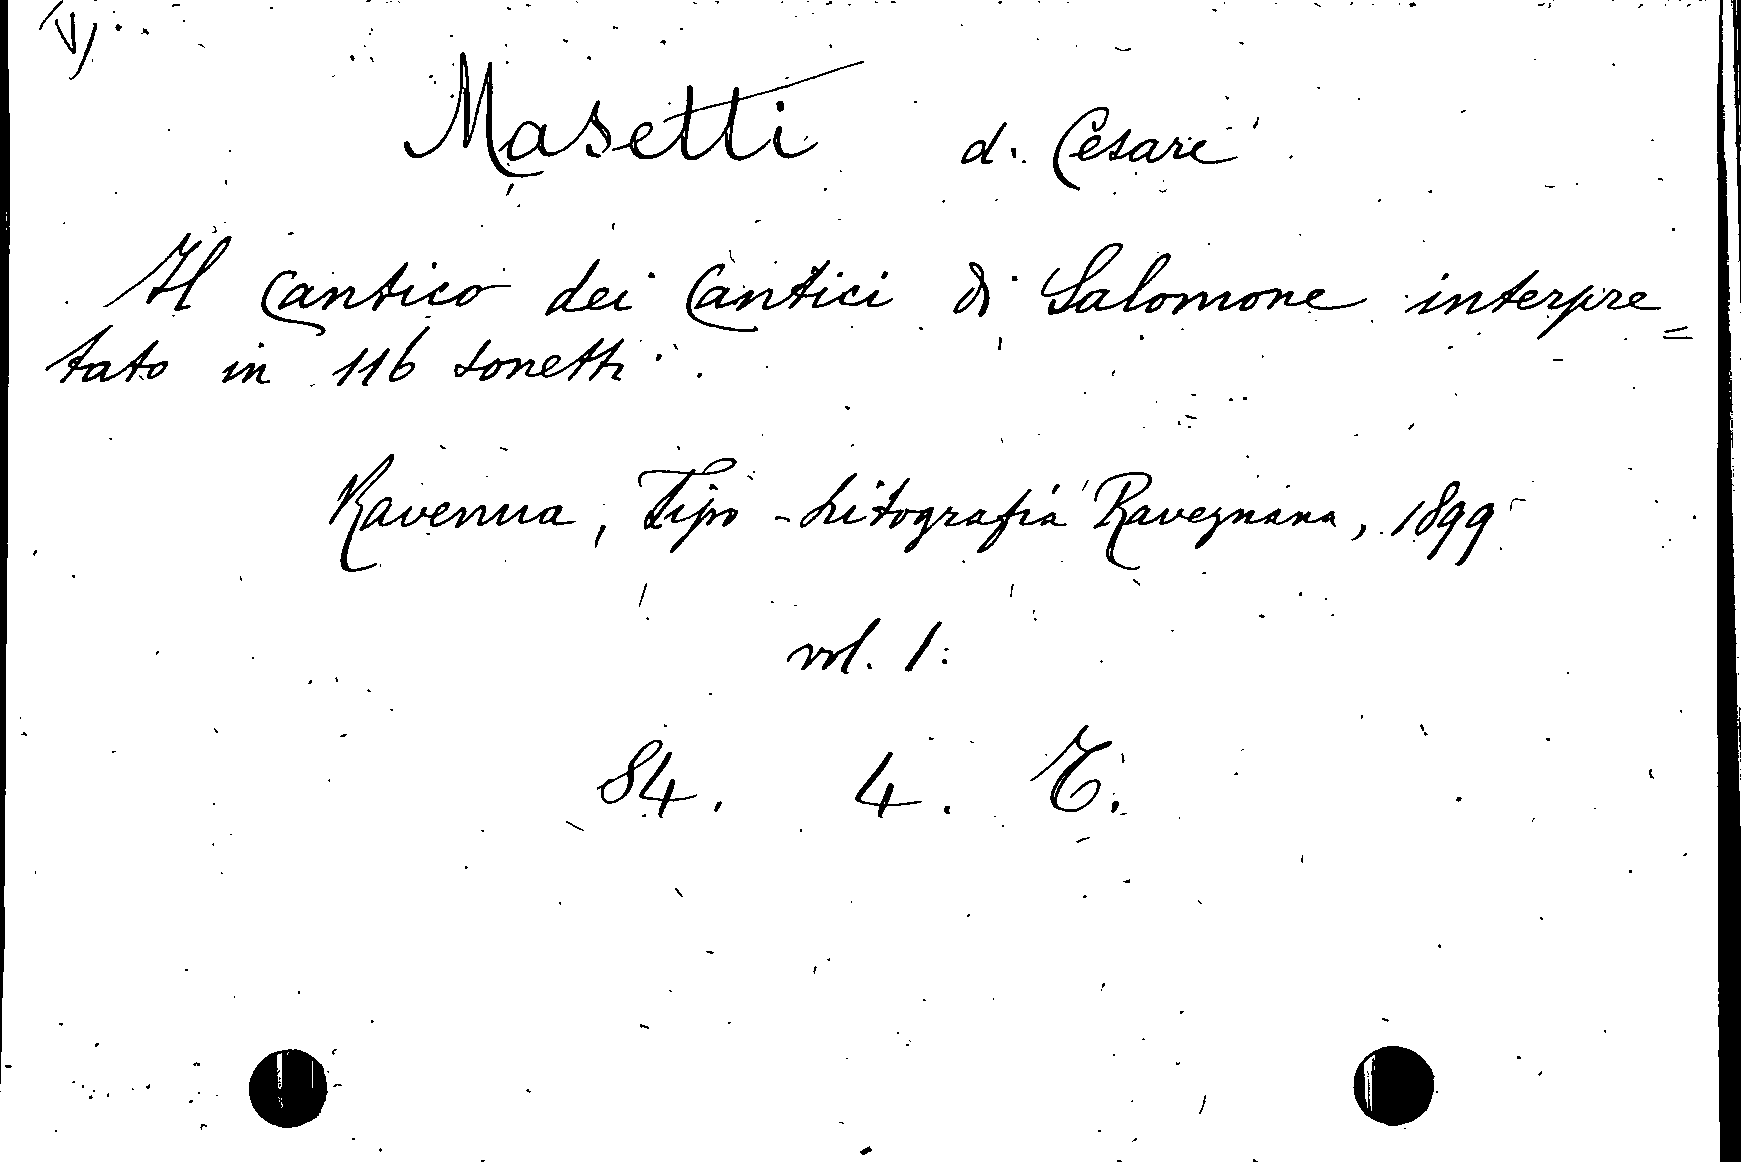 Masetti d. Cesare
Il Cantico dei Cantici di Salomone interpre=
tato in 116 sonetti.
Ravenna, Tipo-Litografia Ravegnana, 1899
vol. 1.
84. 4. T.